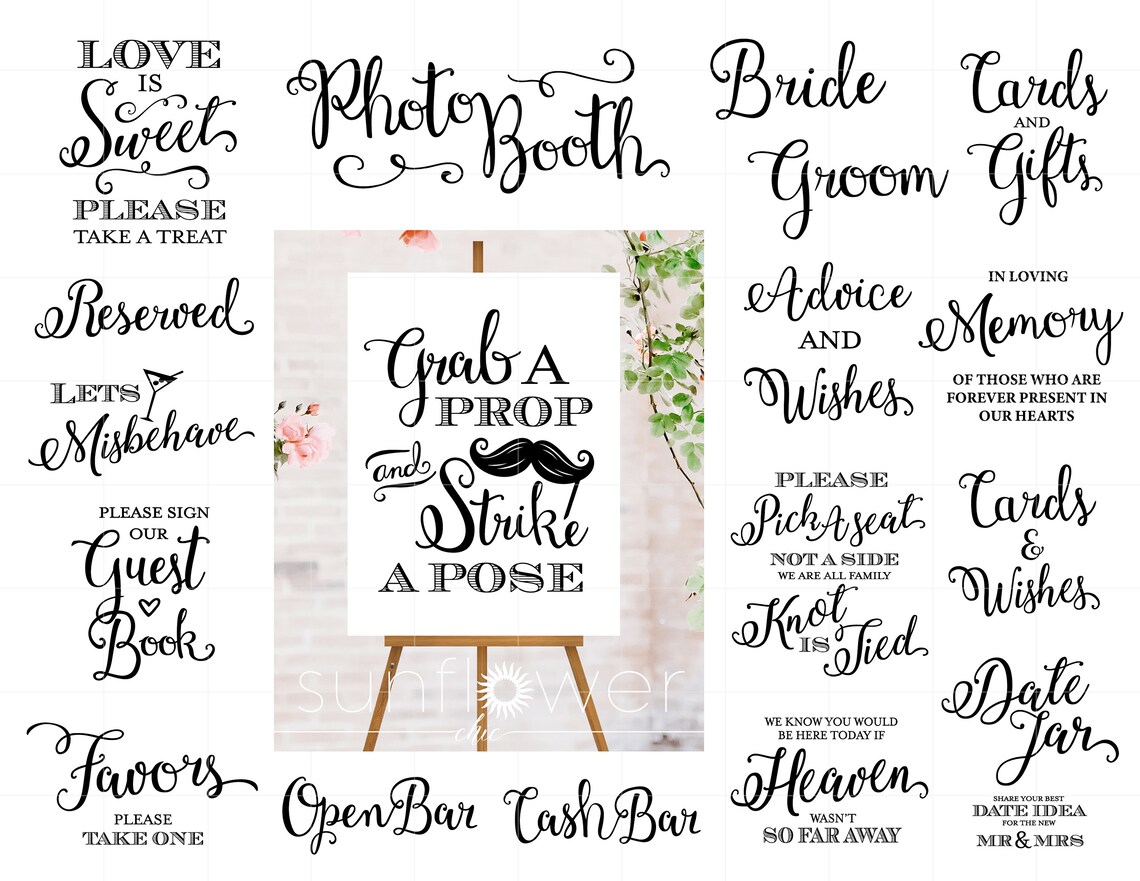 LOVE
IS
Sweet
PLEASE
TAKE A TREAT
Photo
Booth
Bride
Groom
Cards
AND
Gifts
Reserved
LETS
Misbehave
PLEASE SIGN
OUR
Guest
Book
Favors
PLEASE
TAKE ONE
Grab A
PROP
and
Strike
A POSE
sunflower
chic
Open Bar
Cash Bar
Advice
AND
Wishes
IN LOVING
Memory
OF THOSE WHO ARE
FOREVER PRESENT IN
OUR HEARTS
PLEASE
Pick A seat
NOT A SIDE
WE ARE ALL FAMILY
Knot
IS
Tied
Cards
&
Wishes
WE KNOW YOU WOULD
BE HERE TODAY IF
Heaven
WASN'T
SO FAR AWAY
Date
Jar
SHARE YOUR BEST
DATE IDEA
FOR THE NEW
MR & MRS